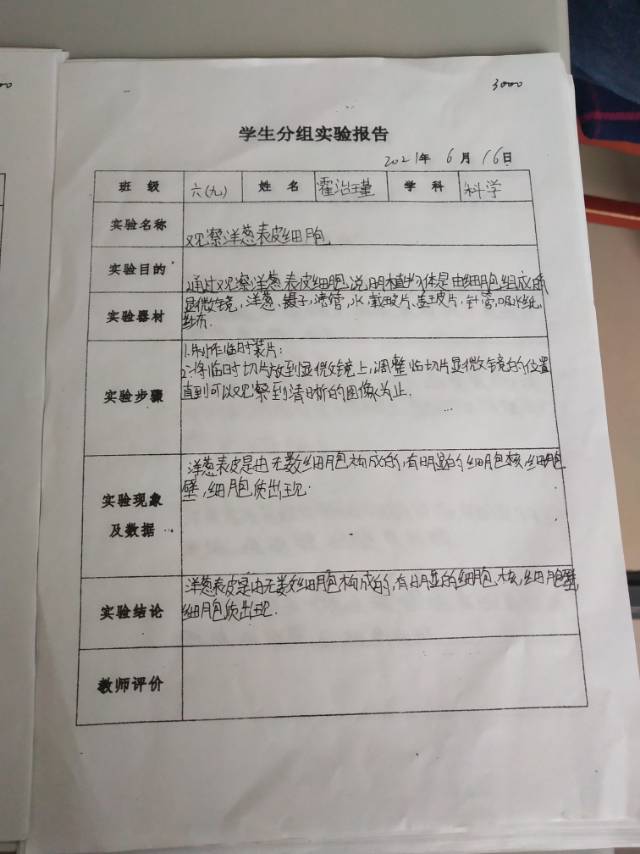 3000
学生分组实验报告
2021年 6 月 16日
班 级 六(九) 姓 名 霍治瑾 学 科 科学
实验名称 观察洋葱表皮细胞
实验目的 通过观察洋葱表皮细胞,说明植物体是由细胞组成的
实验器材 显微镜,洋葱,镊子,滴管,水,载玻片,盖玻片,针管,吸水纸,
纱布.
实验步骤 1.制作临时装片;
2.将临时切片放到显微镜上,调整临切片显微镜的位置
直到可以观察到清晰的图像为止.
实验现象
及数据
洋葱表皮是由无数细胞构成的,有明显的细胞核,细胞
壁,细胞质出现.
实验结论 洋葱表皮是由无数细胞构成的,有明显的细胞核,细胞壁,
细胞质出现.
教师评价